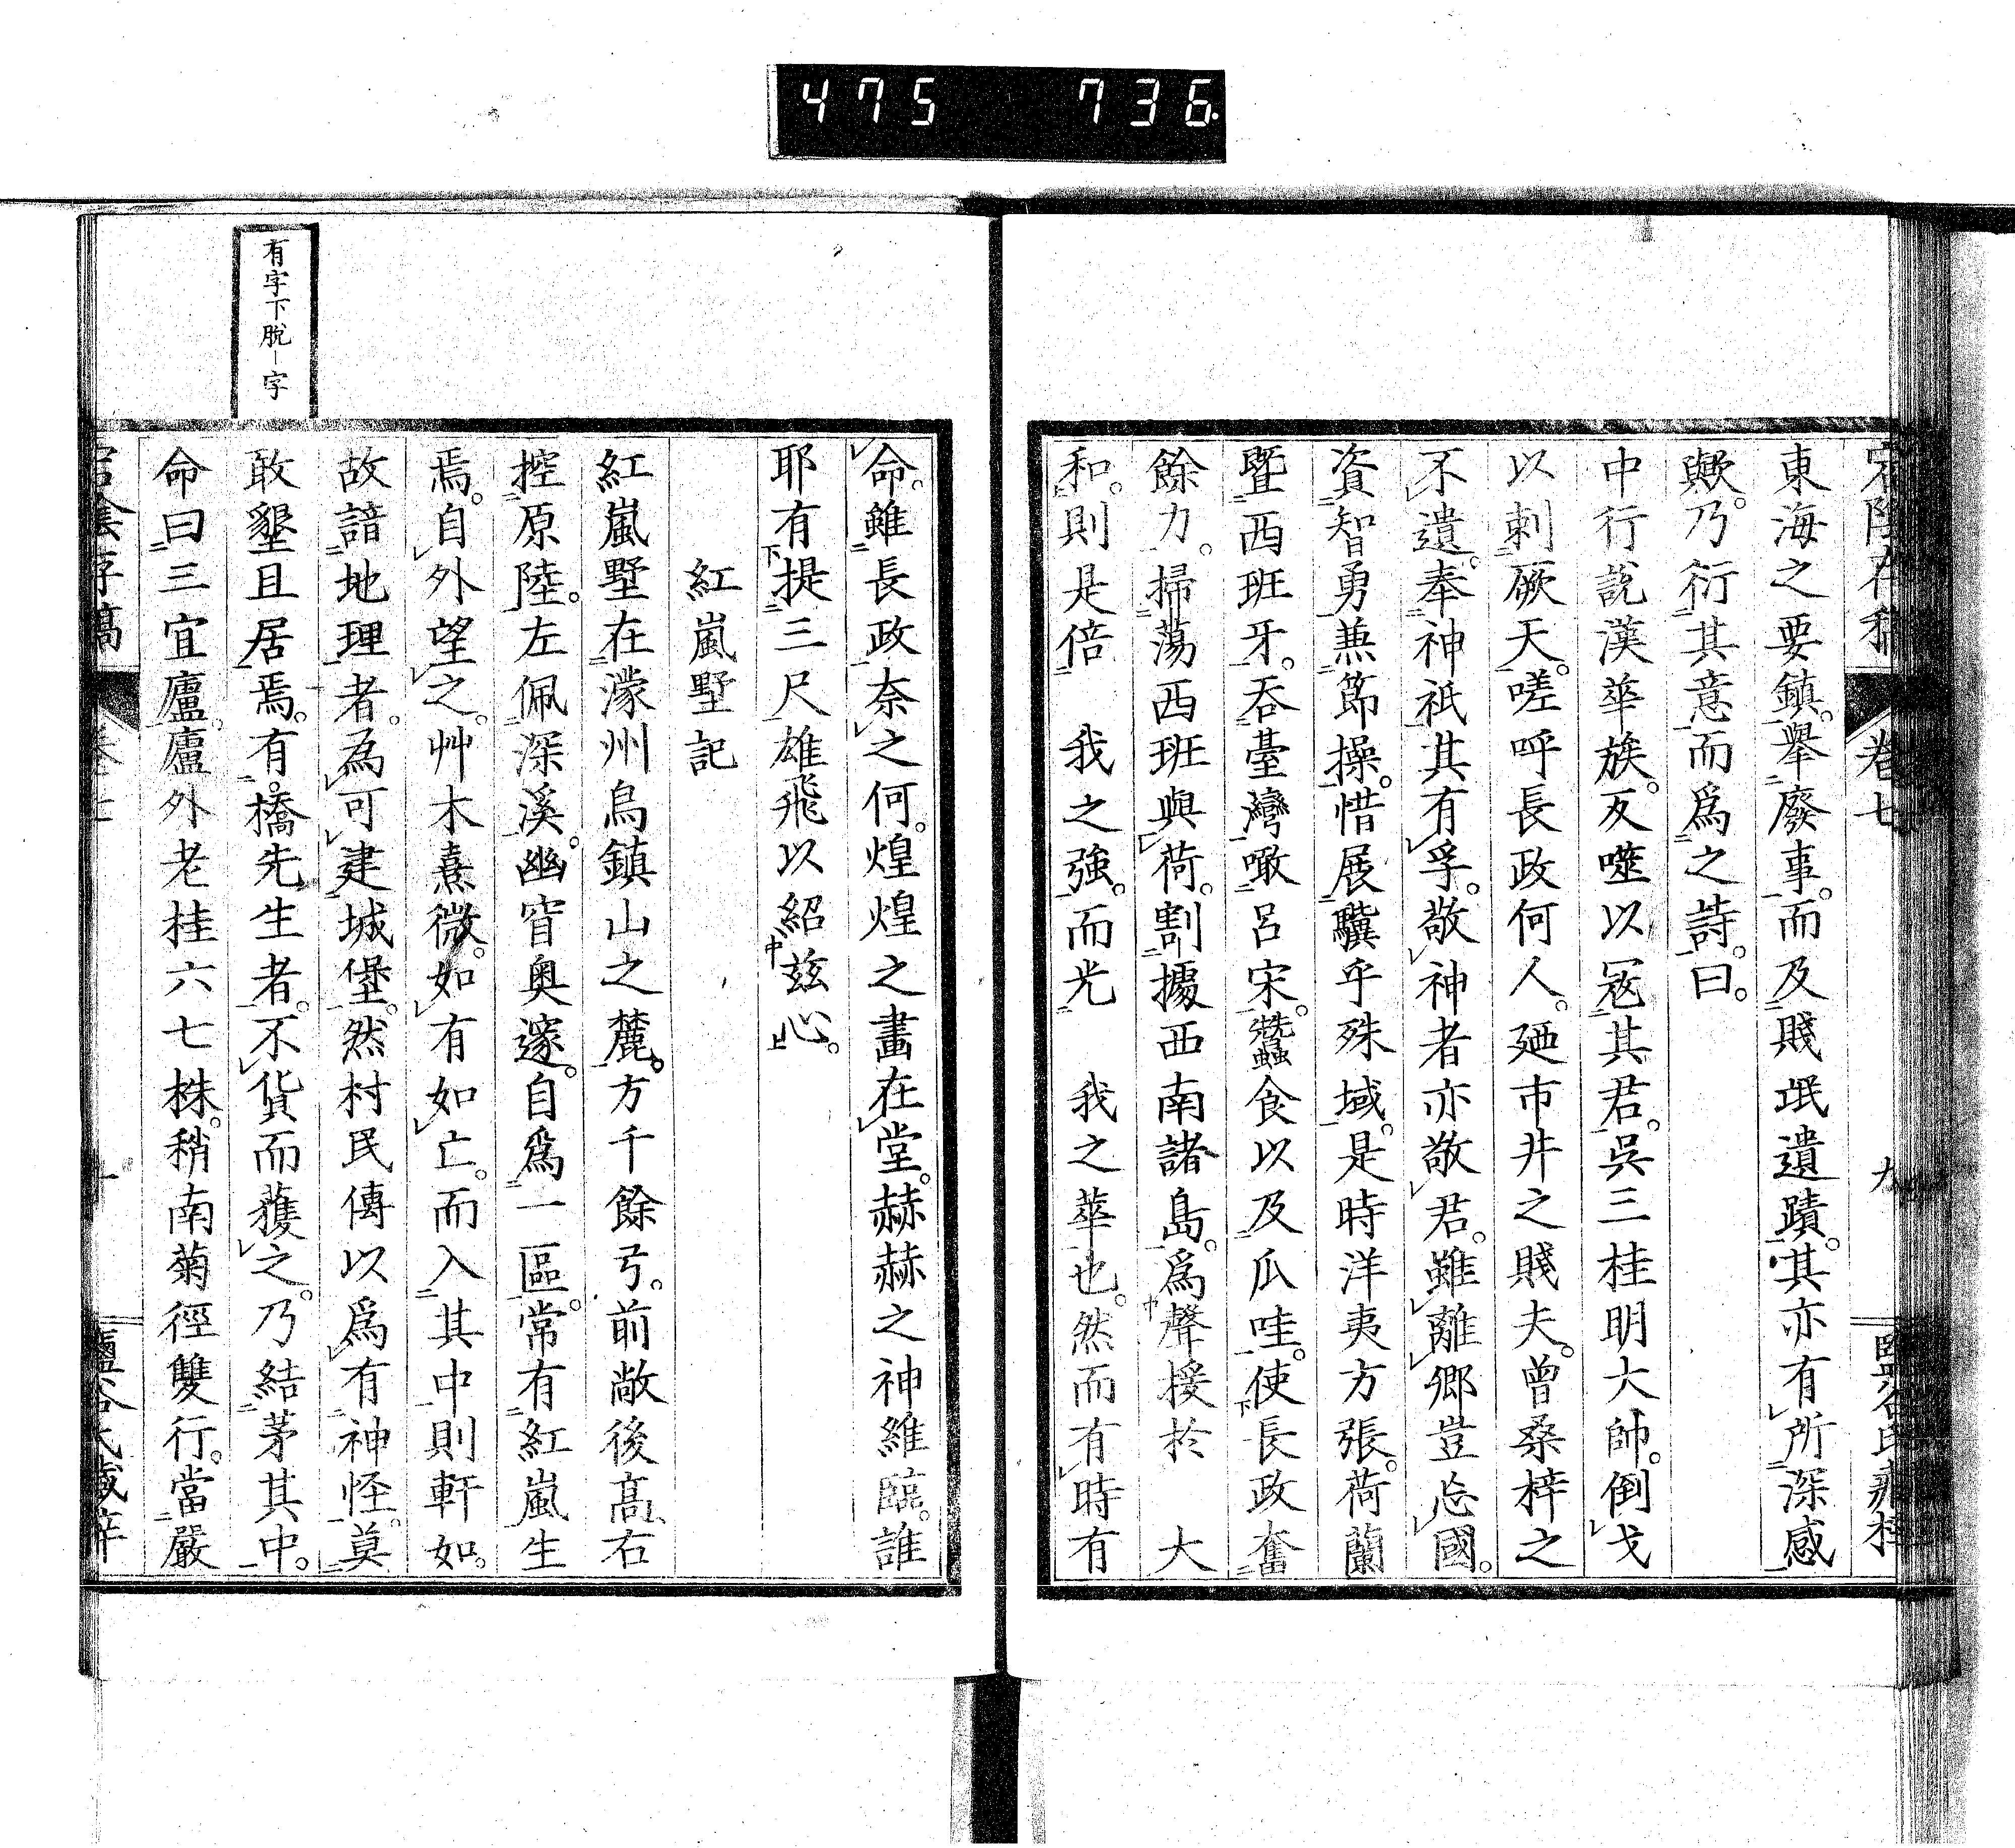 475 736.
東海之要鎮。舉廢事。而及賤氓遺蹟。其亦有所深感
歟。乃衍其意而爲之詩。曰。
中行說漢華族。反噬以寇其君。吳三桂明大帥。倒戈
以刺厥天。嗟呼長政何人。廼市井之賤夫。曾桑梓之
不遺。奉神祇其有孚。敬神者亦敬君。雖離鄉豈忘國。
資智勇兼節操。惜展驥乎殊域。是時洋夷方張。荷蘭
暨西班牙。吞臺灣噉呂宋。蠶食以及瓜哇。使長政奮
餘力。掃蕩西班與荷。割據西南諸島。爲聲援於 大
和。則是倍 我之強。而光 我之華也。然而有時有
命。雖長政奈之何。煌煌之畫在堂。赫赫之神維臨。誰
耶有提三尺雄飛以紹茲心。
紅嵐墅記
紅嵐墅在濛州烏鎮山之麓。方千餘弓。前敞後髙。右
控原陸。左佩深溪。幽窅奥邃。自爲一區。常有紅嵐生
焉。自外望之。艸木熹微。如有如亡。而入其中則軒如。
故諳地理者。為可建城堡。然村民傳以爲有神怪。莫
敢墾且居焉。有橋先生者。不貨而獲之。乃結茅其中。
命曰三宜廬。廬外老挂六七株。稍南菊徑雙行。當嚴
有字下脫一字
卷七
九